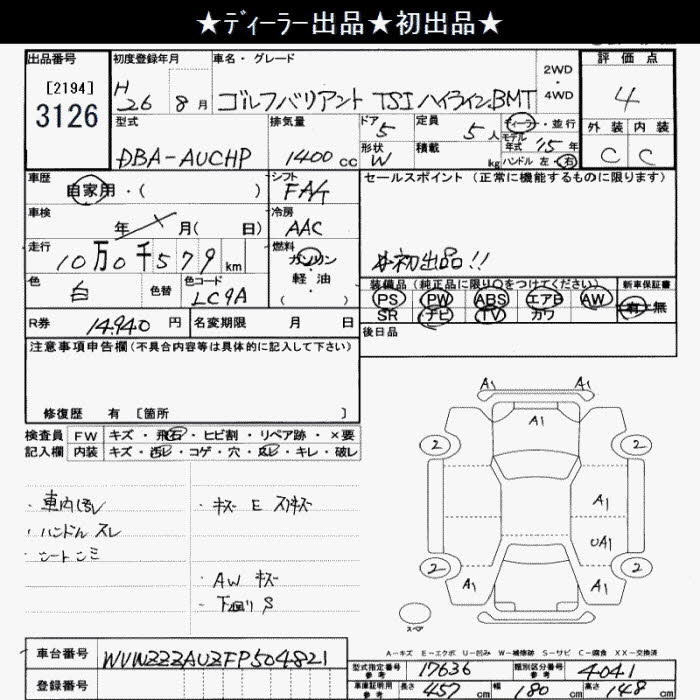 ★ディーラー出品★初出品★
出品番号
[2194]
3126
初度登録年月
H 26 8月
車名・グレード
ゴルフバリアント TSIハイライン BMT
2WD
・
4WD
評価点
4
外装 内装
C C
型式
DBA-AUCHP
排気量
1400cc
ドア
5
形状
W
定員
5人
積載
kg
ディーラー・並行
モデル年式 '15年
ハンドル 左・右
車歴
自家用・( )
シフト
FA7
セールスポイント(正常に機能するものに限ります)
#初出品!!
車検
年 月( 日)
冷房
AAC
走行
10万0千579km
燃料
ガソリン
・
軽油
( )
色
白
色替
色コード
LC9A
装備品(純正品に限り○をつけてください)
PS PW ABS エアB AW
SR ナビ TV カワ
新車保証書
有・無
R券
14,940円
名変期限 月 日
後日品
注意事項申告欄(不具合内容等は具体的に記入して下さい)
修復歴 有 [箇所 ]
検査員記入欄
FW キズ・飛石・ヒビ割・リペア跡・×要
内装 キズ・汚レ・コゲ・穴・スレ・キレ・破レ
・車内汚レ
・ハンドル スレ
・シートシミ
・キズ E スリキズ
・AW キズ
・下廻り S
A1 A1
A1
2 2
A1
UA1
2 2
A1 A1
スペア
A-キズ E-エクボ U-凹み W-補修跡 S-サビ C-腐食 XX-交換済
車台番号
WVWZZZAUZFP504821
登録番号
型式指定番号 参考
17636
類別区分番号 参考
4041
車庫証明用 参考
長さ 457cm 幅 180cm 高さ 148cm